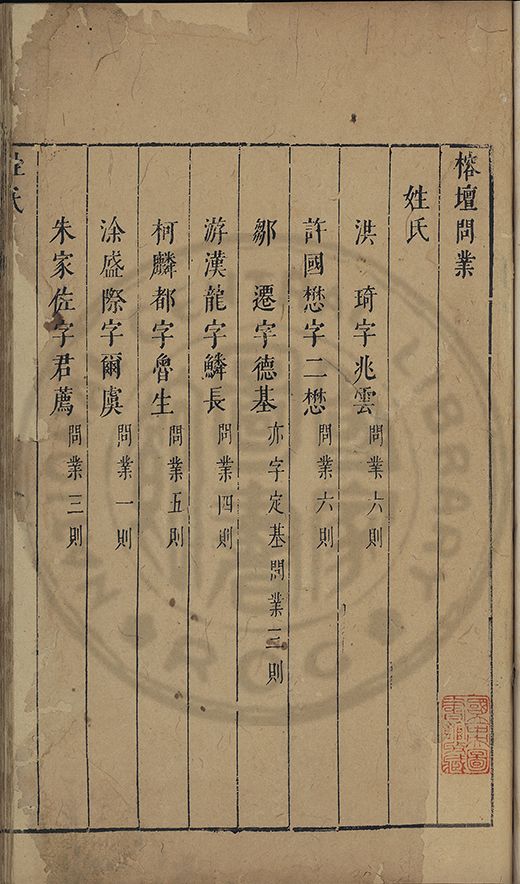 榕壇問業
姓氏
洪　琦字兆雲問業六則
許國懋字二懋問業六則
鄒　遷字德基亦字定基問業三則
游漢龍字鱗長問業四則
柯麟都字魯生問業五則
涂盛際字爾虞問業一則
朱家佐字君薦問業三則
姓氏